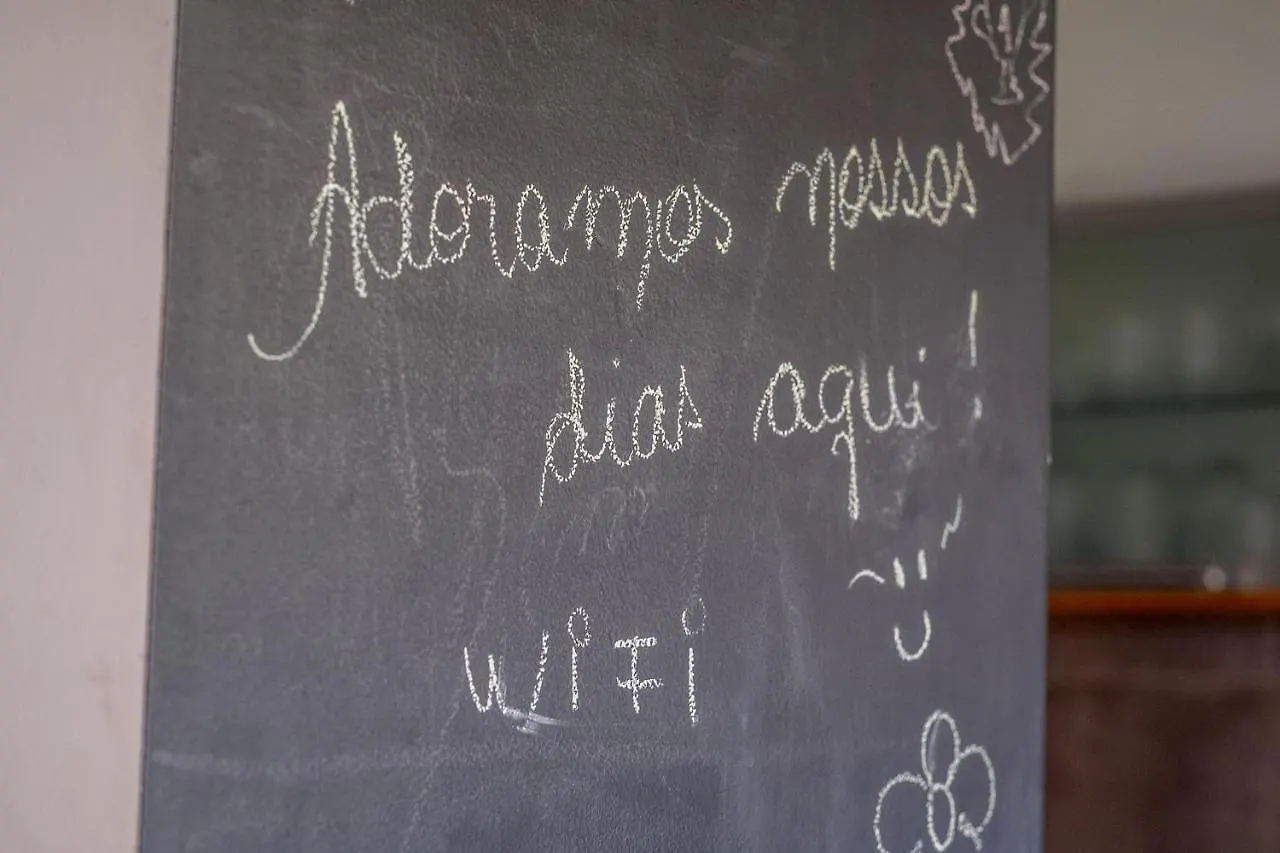 Adoramos nossos
dias aqui!
WiFi